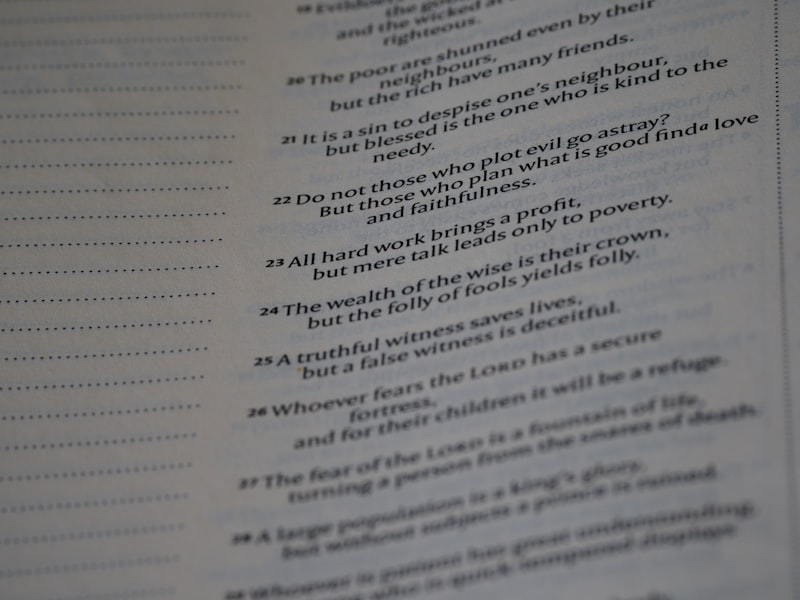 and the wicked at
righteous.
20 The poor are shunned even by their
neighbours,
but the rich have many friends.
21 It is a sin to despise one's neighbour,
but blessed is the one who is kind to the
needy.
22 Do not those who plot evil go astray?
But those who plan what is good find a love
and faithfulness.
23 All hard work brings a profit,
but mere talk leads only to poverty.
24 The wealth of the wise is their crown,
but the folly of fools yields folly.
25 A truthful witness saves lives,
but a false witness is deceitful.
26 Whoever fears the LORD has a secure
fortress,
and for their children it will be a refuge.
27 The fear of the LORD is a fountain of life,
turning a person from the snares of death.
28 A large population is a king's glory,
but without subjects a prince is ruined.
Whoever is patient has great understanding,
quick-tempered displays